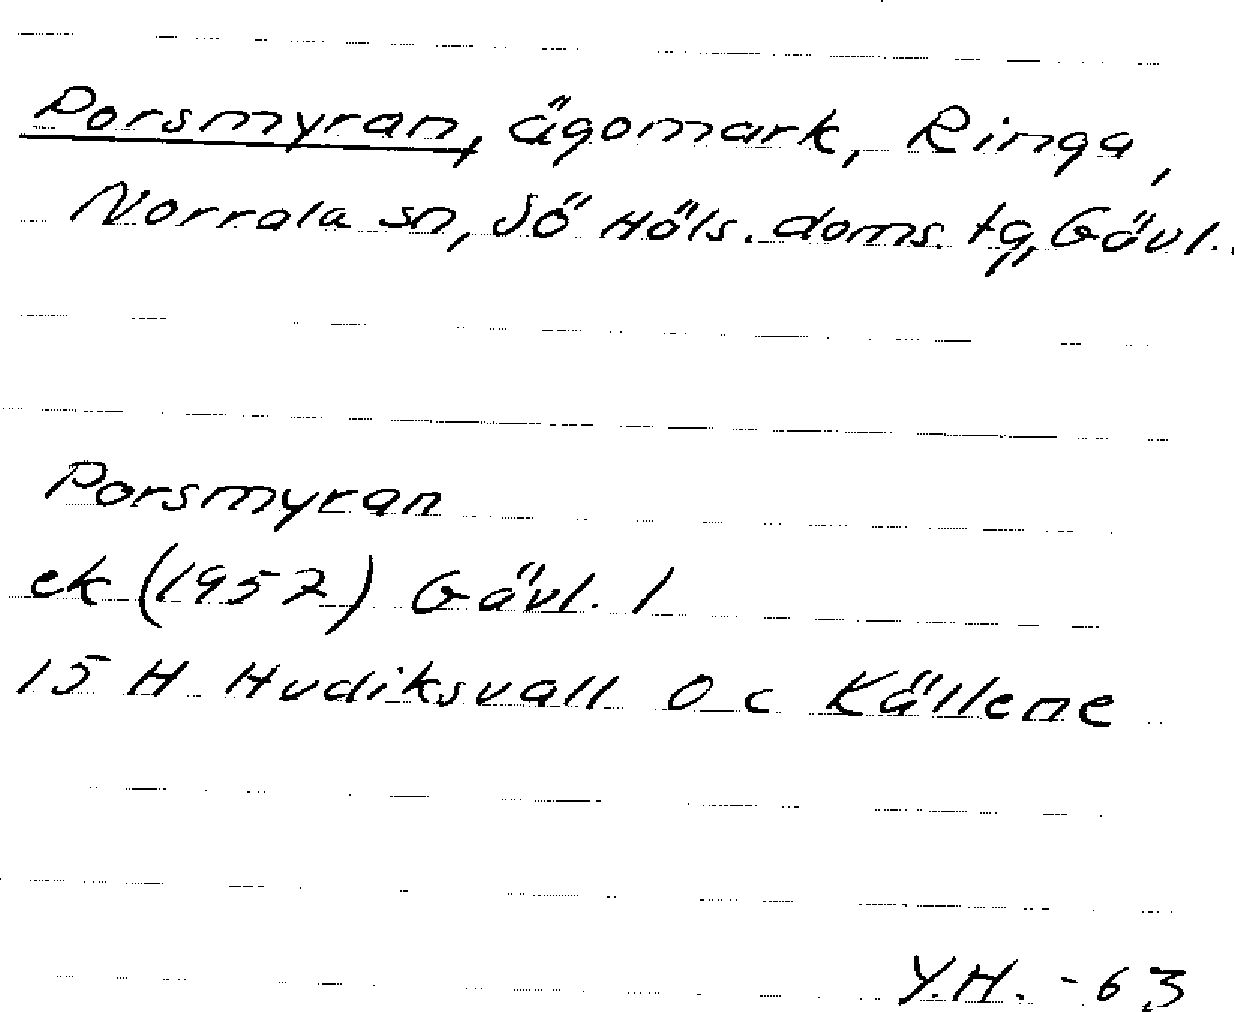 Porsmyran, ägomark, Ringa,
Norrala sn, Sö Häls. doms. tg, Gävl.
Porsmyran
ek (1957) Gävl. l
15 H Hudiksvall 0 c Källene
Y.H. -63